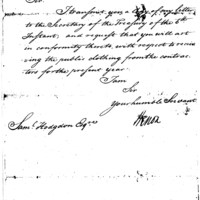 Sir.
I transmit you a Copy of my letter
to the Secretary of the Treasury of the 6th
Instant, and request that you will act
in conformity thereto, with respect to receiv
ing the public cloathing from the contrac
tors for the present year.
I am
Sir
Your humble Servant
HKnox
Saml. Hodgdon Esqr.